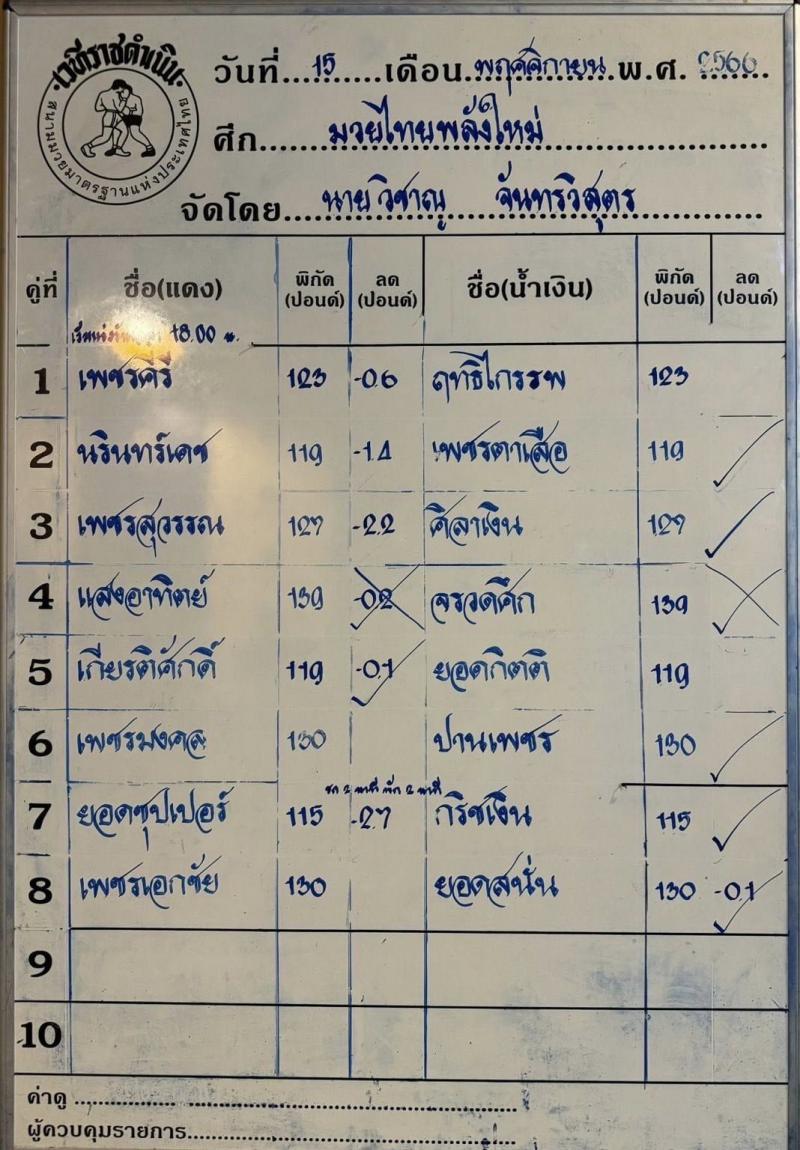 เวทีราชดำเนิน
สนามมวยมาตรฐานแห่งประเทศไทย
วันที่...15......เดือน.พฤศจิกายน.พ.ศ. 2566
ศึก......มวยไทยพลังใหม่
จัดโดย....นายวิชาณู จันทรวิสุตร
คู่ที่ ชื่อ(แดง) พิกัด (ปอนด์) ลด (ปอนด์) ชื่อ(น้ำเงิน) พิกัด (ปอนด์) ลด (ปอนด์)
18.00 น.
1 เพชรคีรี 123 -0.6 ฤทธิไกรรพ 123
2 นรินทร์เดช 119 -1.4 เพชรตาเสือ 119
3 เพชรสุวรรณ 127 -2.2 ศิลาเงิน 127
4 แสงอาทิตย์ 139 -0.2 จรวดศึก 139
5 เกียรติศักดิ์ 119 -0.1 ยอดกิตติ 119
6 เพชรมงคล 130 ปานเพชร 130
ชก 2 นาที พัก 2 นาที
7 ยอดซุปเปอร์ 115 -2.7 กริชเงิน 115
8 เพชรเอกชัย 130 ยอดสนั่น 130 -0.1
9
10
ค่าดู
ผู้ควบคุมรายการ